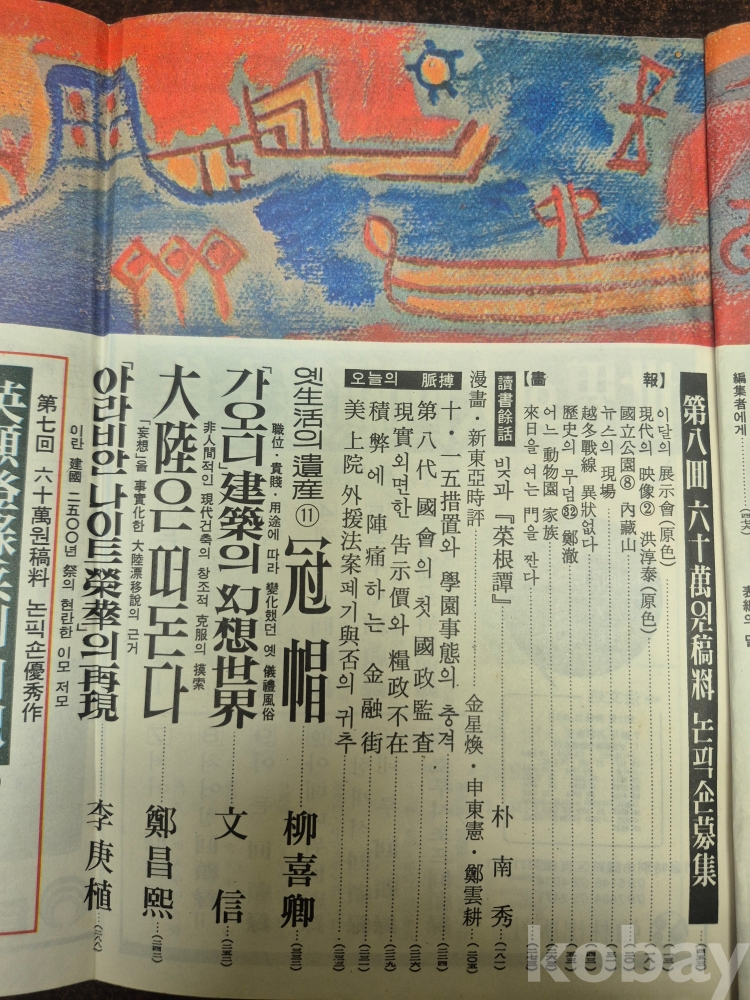 編集者에게
第八回 六十萬원稿料 논픽숀募集
【畵報】
이달의 展示會(原色)
現代의 映像② 洪淳泰(原色)
國立公園⑧ 內藏山
뉴스의 現場
越冬戰線 異狀없다
歷史의 무덤㉜ 鄭澈
어느 動物園 家族
來日을 여는 門을 짠다
讀書餘話 빚과『菜根譚』 朴南秀 (一八一)
漫畵・新東亞時評 金星煥・申東憲・鄭雲耕 (二〇五)
오늘의 脈搏
十・一五措置와 學園事態의 충격
第八代 國會의 첫 國政監査
現實외면한 告示價와 糧政不在
積弊에 陣痛하는 金融街
美上院 外援法案폐기與否의 귀추
옛生活의 遺産⑪ 冠帽 柳喜卿
職位・貴賤・用途에 따라 變化했던 옛 儀禮風俗
「가오디」建築의 幻想世界 文信
非人間的인 現代건축의 창조적 克服의 摸索
大陸은 떠돈다 鄭昌熙
「妄想」을 事實化한 大陸漂移說의 근거
「아라비안나이트」榮華의 再現 李庚植
이란 建國 二五〇〇年 祭의 현란한 이모 저모
第七回 六十萬원稿料 논픽숀優秀作
kobay